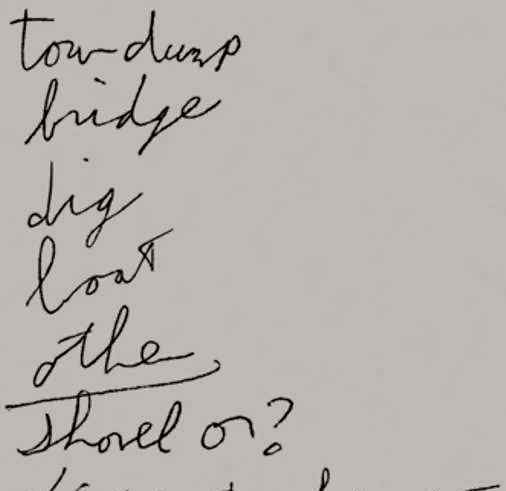 tow-dump
bridge
dig
boat
othe
Shovel or?